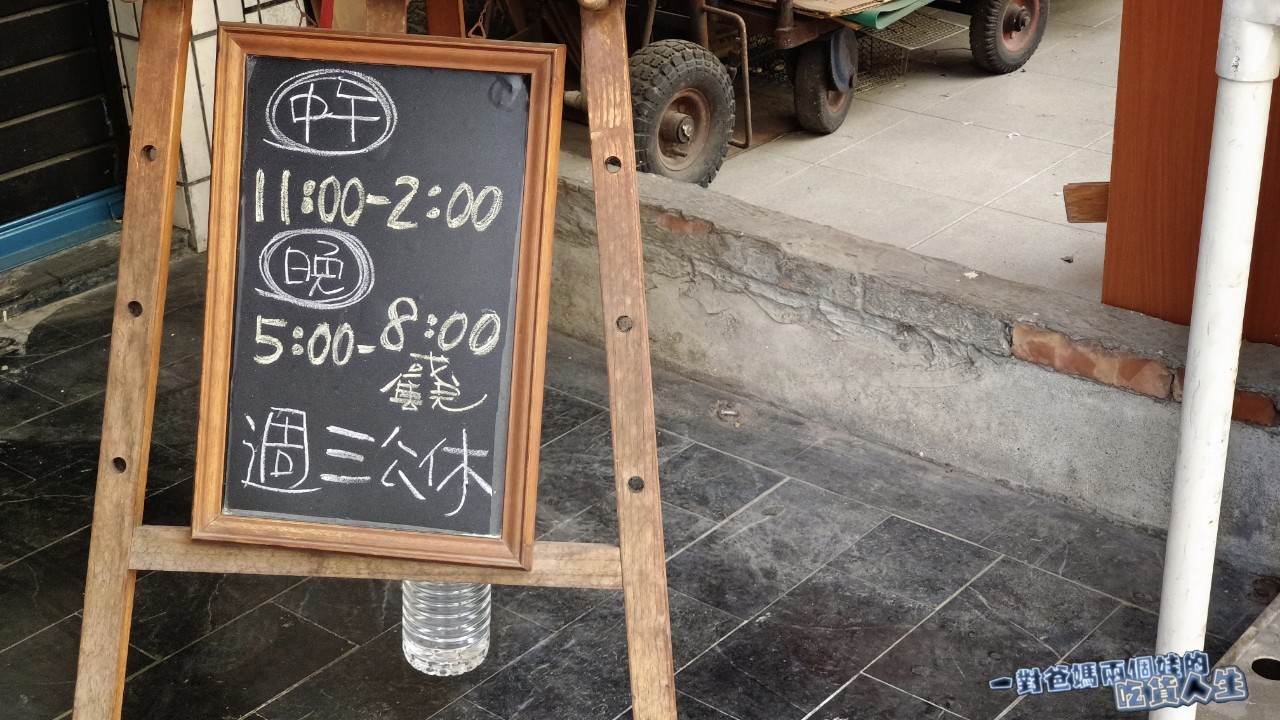 中午
11:00-2:00
晚
5:00-8:00
週三公休
一對爸媽兩個娃的
吃貨人生